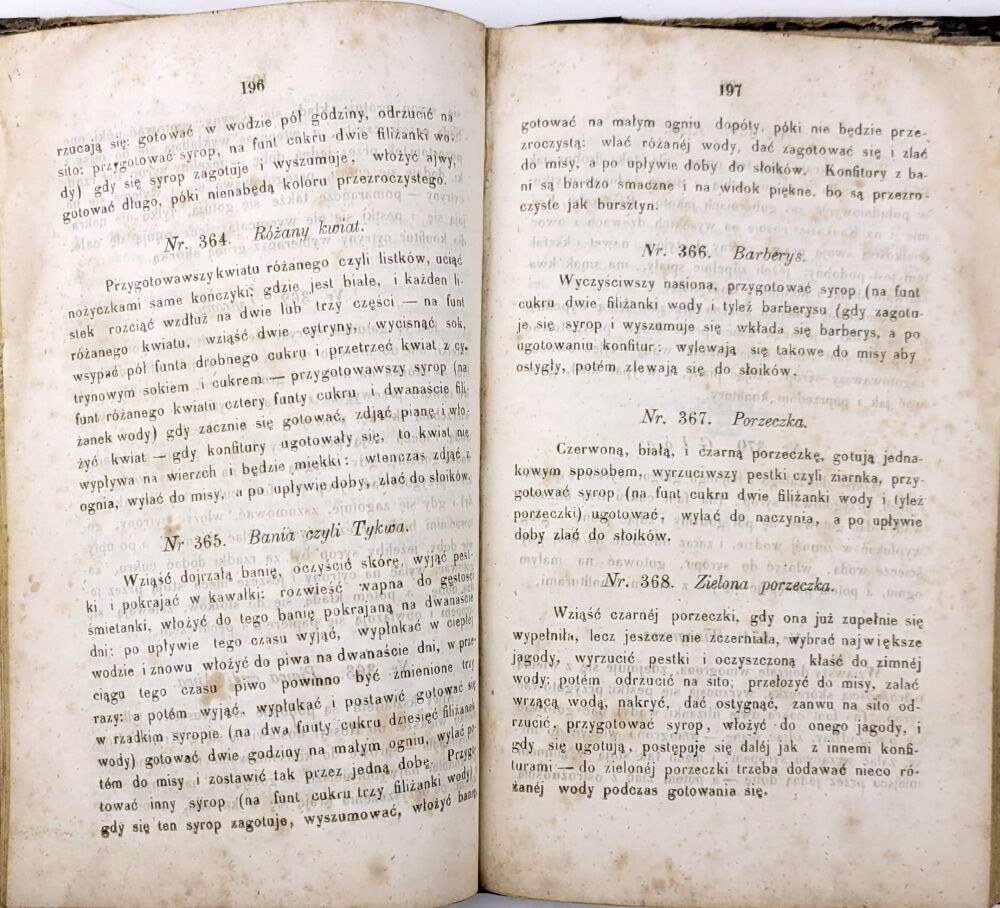 196
rzucają się: gotować w wodzie pół godziny, odrzucić na
sito: przygotować syrop, na funt cukru dwie filiżanki wo-
dy) gdy się syrop zagotuje i wyszumuje, włożyć ajwy,
gotować długo, póki nienabędą koloru przezroczystego.
Nr. 364. Różany kwiat.
Przygotowawszy kwiatu różanego czyli listków, uciąć
nożyczkami same kończyki, gdzie jest białe, i każden li-
stek rozciąć wzdłuż na dwie lub trzy części — na funt
różanego kwiatu, wziąść dwie cytryny, wycisnąć sok,
wsypać pół funta drobnego cukru i przetrzeć kwiat z cy-
trynowym sokiem i cukrem — przygotowawszy syrop (na
funt różanego kwiatu cztery funty cukru i dwanaście fili-
żanek wody) gdy zacznie się gotować, zdjąć pianę i wło-
żyć kwiat — gdy konfitury ugotowały się, to kwiat nie
wypływa na wierzch i będzie miękki: wtenczas zdjąć z
ognia, wylać do misy, a po upływie doby, zlać do słoików.
Nr 365. Bania czyli Tykwa.
Wziąść dojrzałą banię, oczyścić skórę, wyjąć pest-
ki, i pokrajać w kawałki: rozwieść wapna do gęstości
śmietanki, włożyć do tego banię pokrajaną na dwanaście
dni: po upływie tego czasu wyjąć, wypłukać w ciepłéj
wodzie i znowu włożyć do piwa na dwanaście dni, w prze-
ciągu tego czasu piwo powinno być zmienione trzy
razy: a potém wyjąć, wypłukać i postawić gotować się
w rzadkim syropie (na dwa funty cukru dziesięć filiżanek
wody) gotować dwie godziny na małym ogniu, wylać po-
tém do misy i zostawić tak przez jedną dobę. Przygo-
tować inny syrop (na funt cukru trzy filiżanki wody) i
gdy się ten syrop zagotuje, wyszumować, włożyć banię
197
gotować na małym ogniu dopóty, póki nie będzie prze-
zroczystą: wlać różanéj wody, dać zagotować się i zlać
do misy, a po upływie doby do słoików. Konfitury z ba-
ni są bardzo smaczne i na widok piękne, bo są przezro-
czyste jak bursztyn.
Nr. 366. Barberys.
Wyczyściwszy nasiona, przygotować syrop (na funt
cukru dwie filiżanki wody i tyleż barberysu (gdy zagotu-
je się syrop i wyszumuje się wkłada się barberys, a po
ugotowaniu konfitur: wylewają się takowe do misy aby
ostygły, potém zlewają się do słoików.
Nr. 367. Porzeczka.
Czerwoną, białą, i czarną porzeczkę, gotują jedna-
kowym sposobem, wyrzuciwszy pestki czyli ziarnka, przy-
gotować syrop (na funt cukru dwie filiżanki wody i tyleż
porzeczki) ugotować, wylać do naczynia, a po upływie
doby zlać do słoików.
Nr. 368. Zielona porzeczka.
Wziąść czarnéj porzeczki, gdy ona już zupełnie się
wypełniła, lecz jeszcze nie zczerniała, wybrać największe
jagody, wyrzucić pestki i oczyszczoną kłaść do zimnéj
wody: potém odrzucić na sito; przełożyć do misy, zalać
wrzącą wodą, nakryć, dać ostygnąć, zanwu na sito od-
rzucić, przygotować syrop, włożyć do onego jagody, i
gdy się ugotują, postępuje się daléj jak z innemi konfi-
turami — do zielonéj porzeczki trzeba dodawać nieco ró-
żanéj wody podczas gotowania się.